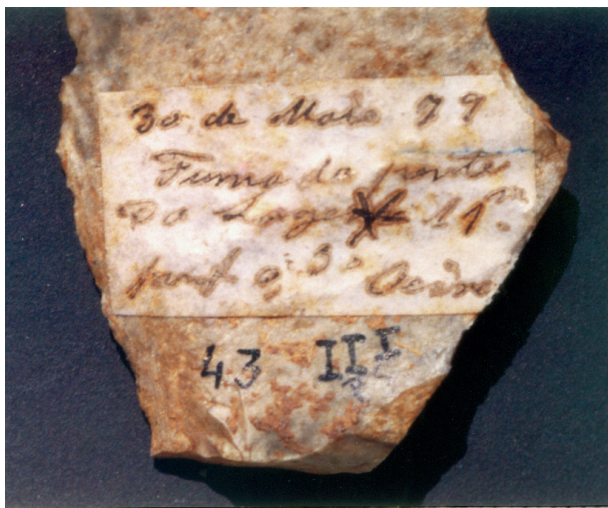 30 de Maio 79
Furna da ponte
Da Lage 11m
Oeiras
43 III